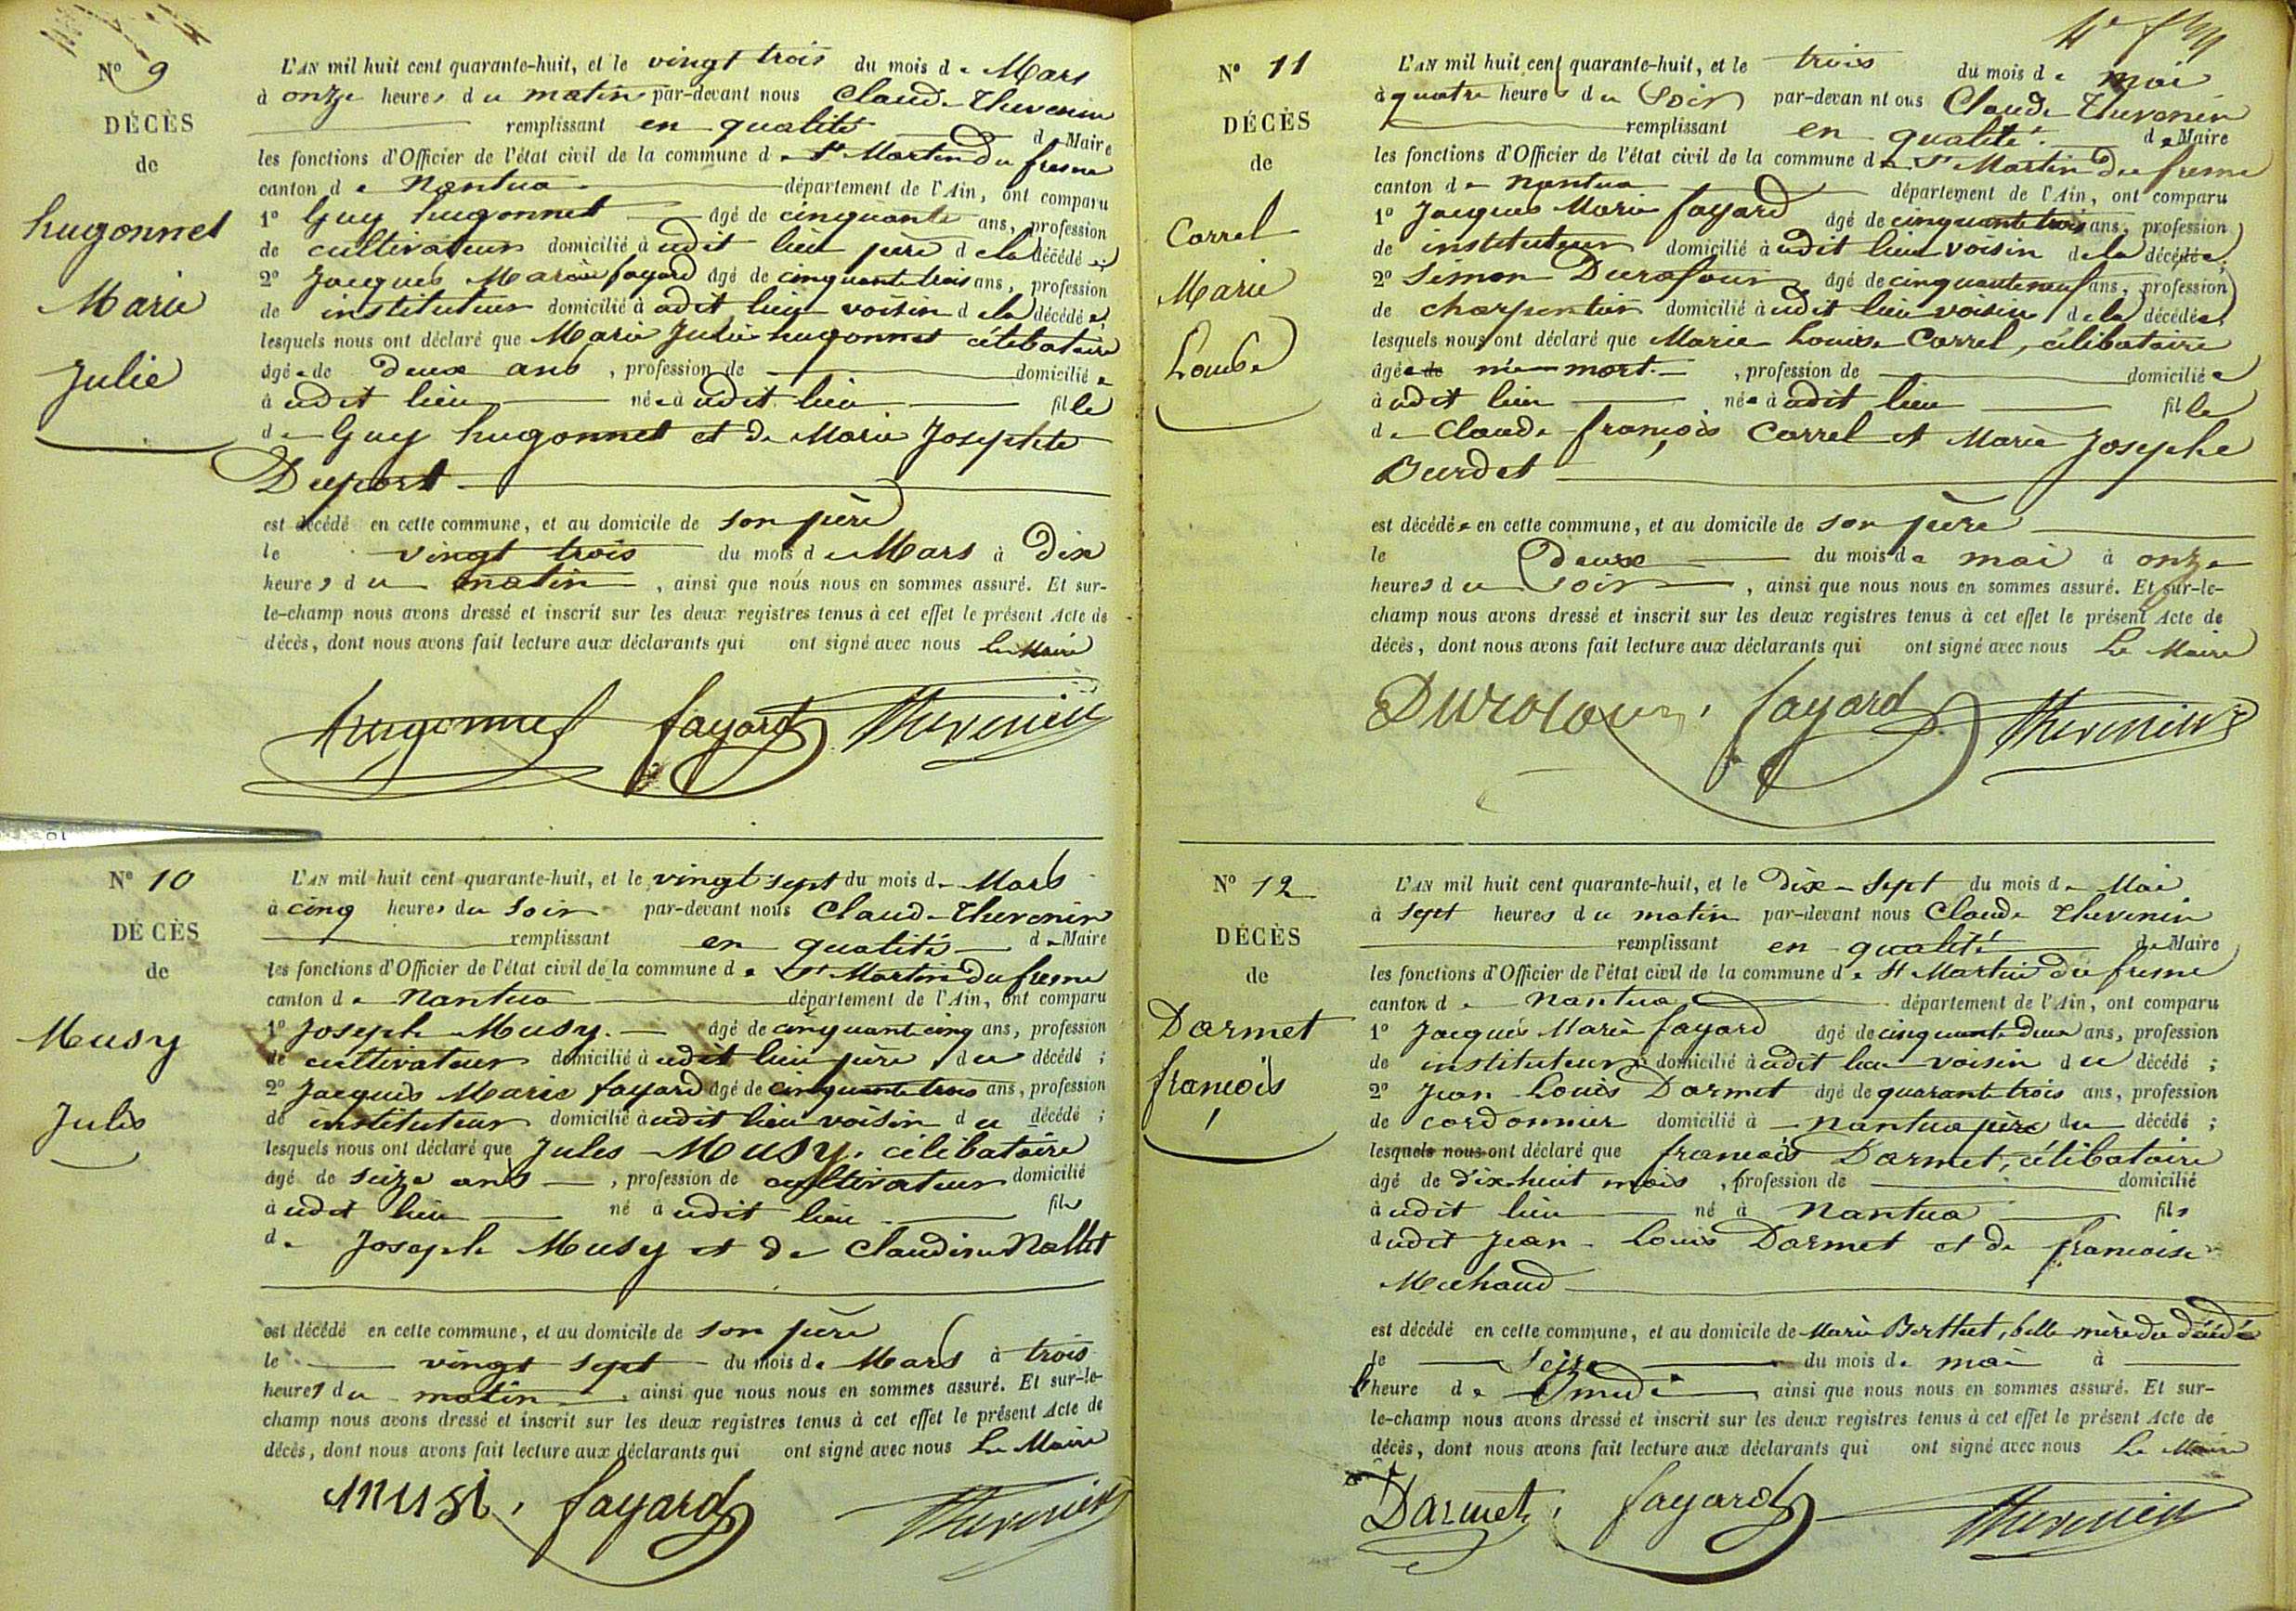 N° 9
DÉCÈS
de
hugonnet
Marie
Julie
L'AN mil huit cent quarante-huit, et le vingt trois du mois de Mars
à onze heures du matin par-devant nous Claude Thevenin
remplissant en qualité de Maire
les fonctions d'Officier de l'état civil de la commune de St Martin du fresne
canton de Nantua département de l'Ain, ont comparu
1° Guy hugonnet âgé de cinquante ans, profession
de cultivateur domicilié à udit lieu père de la décédée;
2° Jacques Marie fayard âgé de cinquante trois ans, profession
de instituteur domicilié à udit lieu voisin de la décédée;
lesquels nous ont déclaré que Marie Julie hugonnet célibataire
âgée de deux ans, profession de domiciliée
à udit lieu née à udit lieu fille
de Guy hugonnet et de Marie Josephte
Duport
est décédé en cette commune, et au domicile de son père
le vingt trois du mois de Mars à dix
heures du matin, ainsi que nous nous en sommes assuré. Et sur-
le-champ nous avons dressé et inscrit sur les deux registres tenus à cet effet le présent Acte de
décès, dont nous avons fait lecture aux déclarants qui ont signé avec nous Le Maire
hugonnet fayard Thevenin
N° 10
DÉCÈS
de
Musy
Jules
L'AN mil huit cent quarante-huit, et le vingt sept du mois de Mars
à cinq heures du soir par-devant nous Claude Thevenin
remplissant en qualité de Maire
les fonctions d'Officier de l'état civil de la commune de St Martin du fresne
canton de Nantua département de l'Ain, ont comparu
1° Joseph Musy. âgé de cinquante cinq ans, profession
de cultivateur domicilié à udit lieu père du décédé;
2° Jacques Marie fayard âgé de cinquante trois ans, profession
de instituteur domicilié à udit lieu voisin du décédé;
lesquels nous ont déclaré que Jules Musy, célibataire
âgé de seize ans, profession de cultivateur domicilié
à udit lieu né à udit lieu fils
de Joseph Musy et de Claudine Nallet
est décédé en cette commune, et au domicile de son père
le vingt sept du mois de Mars à trois
heures du matin, ainsi que nous nous en sommes assuré. Et sur-le-
champ nous avons dressé et inscrit sur les deux registres tenus à cet effet le présent Acte de
décès, dont nous avons fait lecture aux déclarants qui ont signé avec nous Le Maire
Musi, fayard Thevenin
N° 11
DÉCÈS
de
Carrel
Marie
Louise
L'AN mil huit cent quarante-huit, et le trois du mois de mai
à quatre heures du Soir par-devan nt ous Claude Thevenin
remplissant en qualité de Maire
les fonctions d'Officier de l'état civil de la commune de St Martin du fresne
canton de Nantua département de l'Ain, ont comparu
1° Jacques Marie fayard âgé de cinquante trois ans, profession
de instituteur domicilié à udit lieu voisin de la décédée;
2° Simon Durafour âgé de cinquante neuf ans, profession
de charpentier domicilié à udit lieu voisin de la décédée;
lesquels nous ont déclaré que Marie Louise Carrel, célibataire
âgée de née mort, profession de domiciliée
à udit lieu née à udit lieu fille
de Claude françois Carrel et Marie Josephe
Burdet
est décédée en cette commune, et au domicile de son père
le Deux du mois de mai à onze
heures du Soir, ainsi que nous nous en sommes assuré. Et sur-le-
champ nous avons dressé et inscrit sur les deux registres tenus à cet effet le présent Acte de
décès, dont nous avons fait lecture aux déclarants qui ont signé avec nous Le Maire
Durafour, fayard Thevenin
N° 12
DÉCÈS
de
Darmet
françois
L'AN mil huit cent quarante-huit, et le Dix Sept du mois de Mai
à sept heures du matin par-devant nous Claude Thevenin
remplissant en qualité de Maire
les fonctions d'Officier de l'état civil de la commune de St Martin du fresne
canton de Nantua département de l'Ain, ont comparu
1° Jacques Marie fayard âgé de cinquante Deux ans, profession
de instituteur domicilié à udit lieu voisin du décédé;
2° Jean Louis Darmet âgé de quarante trois ans, profession
de cordonnier domicilié à Nantua père du décédé;
lesquels nous ont déclaré que francois Darmet, célibataire
âgé de dix huit mois, profession de domicilié
à udit lieu né à Nantua fils
dudit Jean Louis Darmet et de francoise
Michaud
est décédé en cette commune, et au domicile de Marie Berthet, belle mère du décédé
le Seize du mois de mai à
l'heure de midi ainsi que nous nous en sommes assuré. Et sur-
le-champ nous avons dressé et inscrit sur les deux registres tenus à cet effet le présent Acte de
décès, dont nous avons fait lecture aux déclarants qui ont signé avec nous Le Maire
Darmet, fayard Thevenin